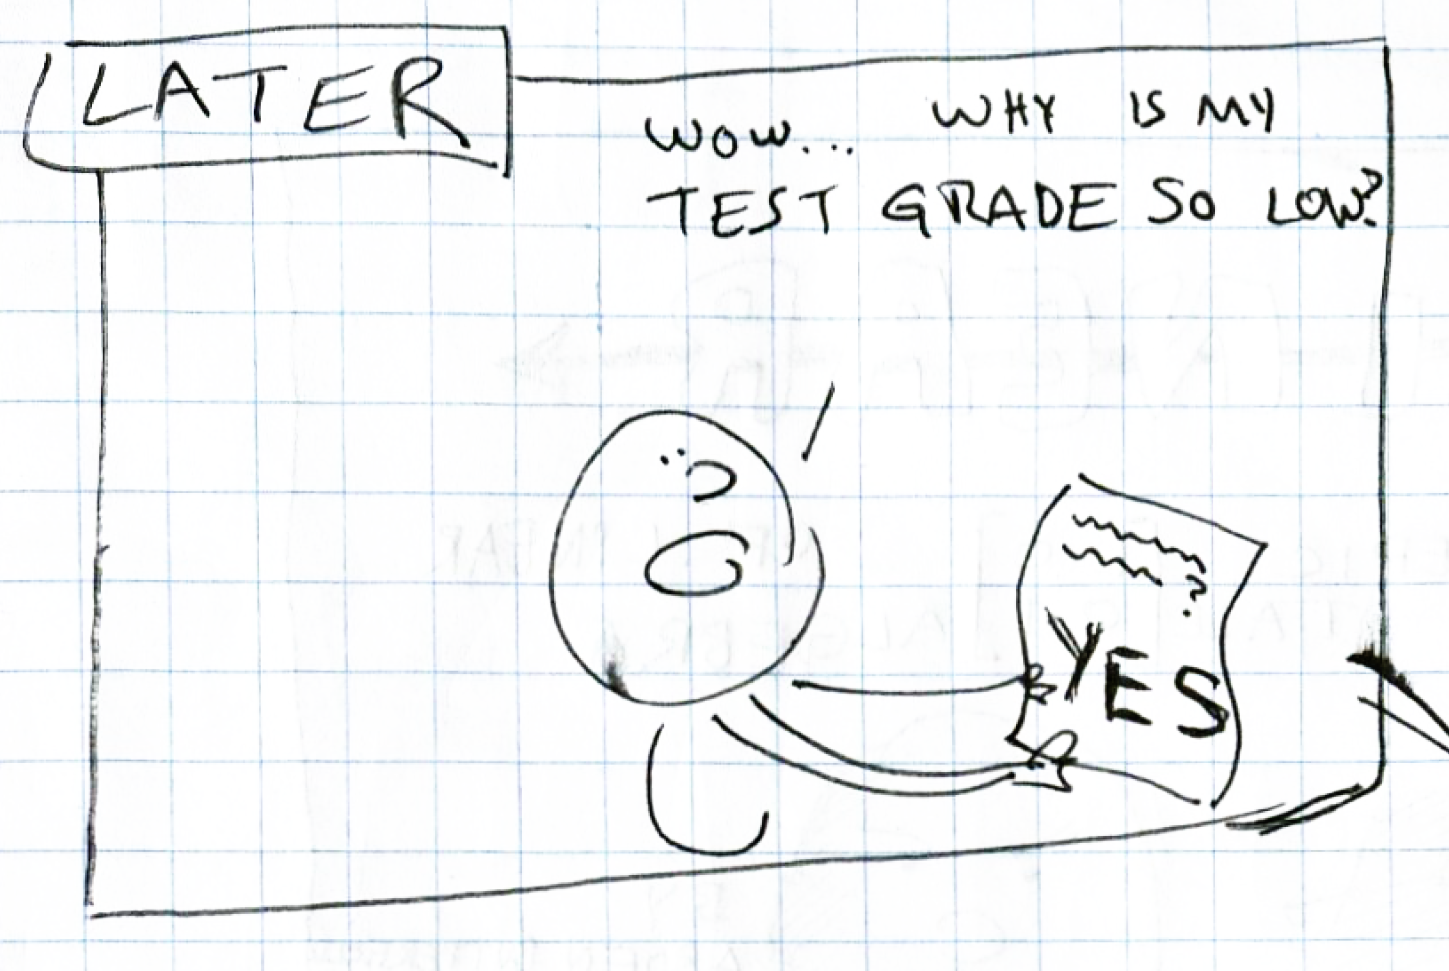 LATER
WOW... WHY IS MY
TEST GRADE SO LOW?
?
YES